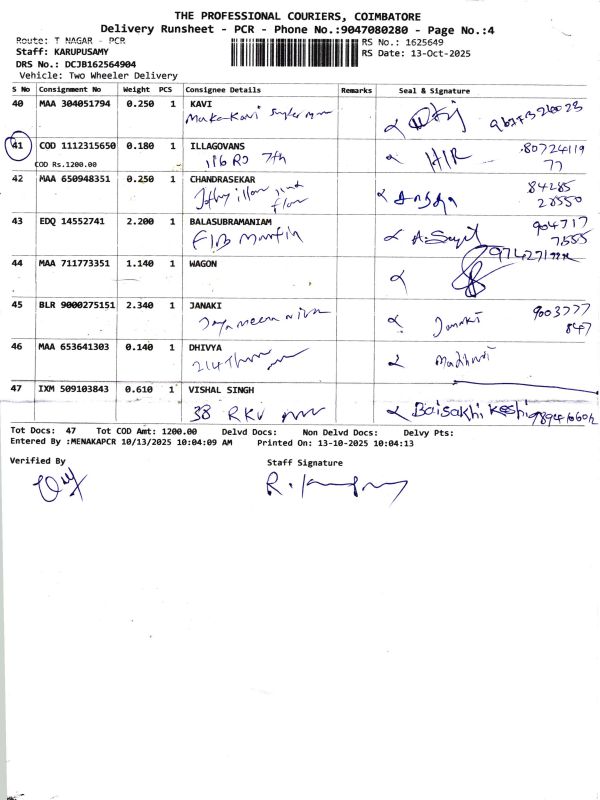 THE PROFESSIONAL COURIERS, COIMBATORE
Delivery Runsheet - PCR - Phone No.:9047080280 - Page No.:4
Route: T NAGAR - PCR RS No.: 1625649
Staff: KARUPUSAMY RS Date: 13-Oct-2025
DRS No.: DCJB162564904
Vehicle: Two Wheeler Delivery
S No Consignment No Weight PCS Consignee Details Remarks Seal & Signature
40 MAA 304051794 0.250 1 KAVI
41 COD 1112315650 0.180 1 ILLAGOVANS 80724119
COD Rs.1200.00 7th HIR 77
42 MAA 650948351 0.250 1 CHANDRASEKAR 84285
floor 28550
43 EDQ 14552741 2.200 1 BALASUBRAMANIAM 904717
F1B 7555
44 MAA 711773351 1.140 1 WAGON
45 BLR 9000275151 2.340 1 JANAKI 9003777
Janaki 847
46 MAA 653641303 0.140 1 DHIVYA
214
47 IXM 509103843 0.610 1 VISHAL SINGH
38 RKV Baisakhi Keshi
Tot Docs: 47 Tot COD Amt: 1200.00 Delvd Docs: Non Delvd Docs: Delvy Pts:
Entered By :MENAKAPCR 10/13/2025 10:04:09 AM Printed On: 13-10-2025 10:04:13
Verified By Staff Signature